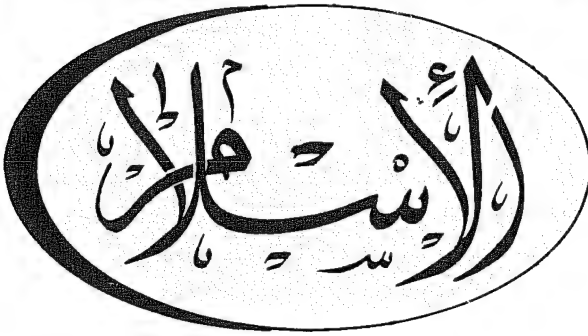 الأسلام